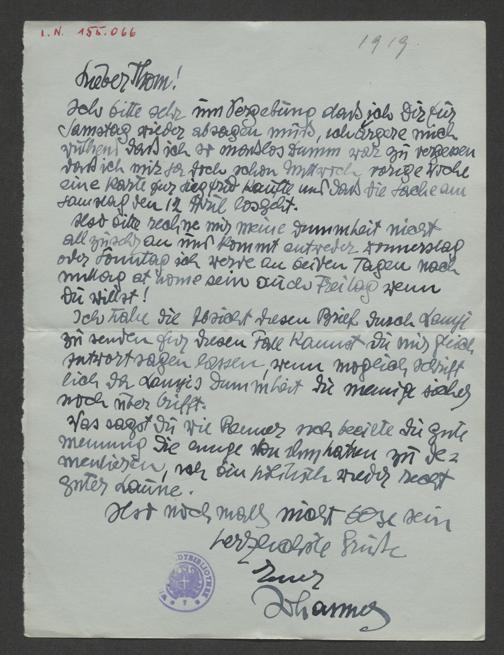 I.N. 155.066
1919.
Lieber Thom!
Ich bitte sehr um Vergebung dass ich Dir für
Samstag wieder absagen muß, ich ärgere mich
wütend daß ich so masslos dumm war zu vergessen
dass ich mir ja doch schon Mittwoch vorige Woche
eine Karte für Siegfried kaufte und daß die Sache am
Samstag den 12 April losgeht.
Also bitte rechne mir meine Dummheit nicht
allzusehr an und kommt entweder Donnerstag
oder Sonntag ich werde an beiden Tagen nach
mittag at home sein auch Freitag wenn
Du willst!
Ich habe die Absicht diesen Brief durch Lanyi
zu senden für diesen Fall kannst Du mir gleich
Antwort sagen lassen, wenn möglich schrift
lich da Lanyis Dummheit die meinige sicher
noch übertrifft.
Was sagst Du wie Renner sich beeilte die gute
Meinung die einige von ihm hatten zu de-
mentieren, ich bin wieder recht
guter Laune.
Also nochmals nicht böse sein
herzlichste Grüße
Euer
Johannes